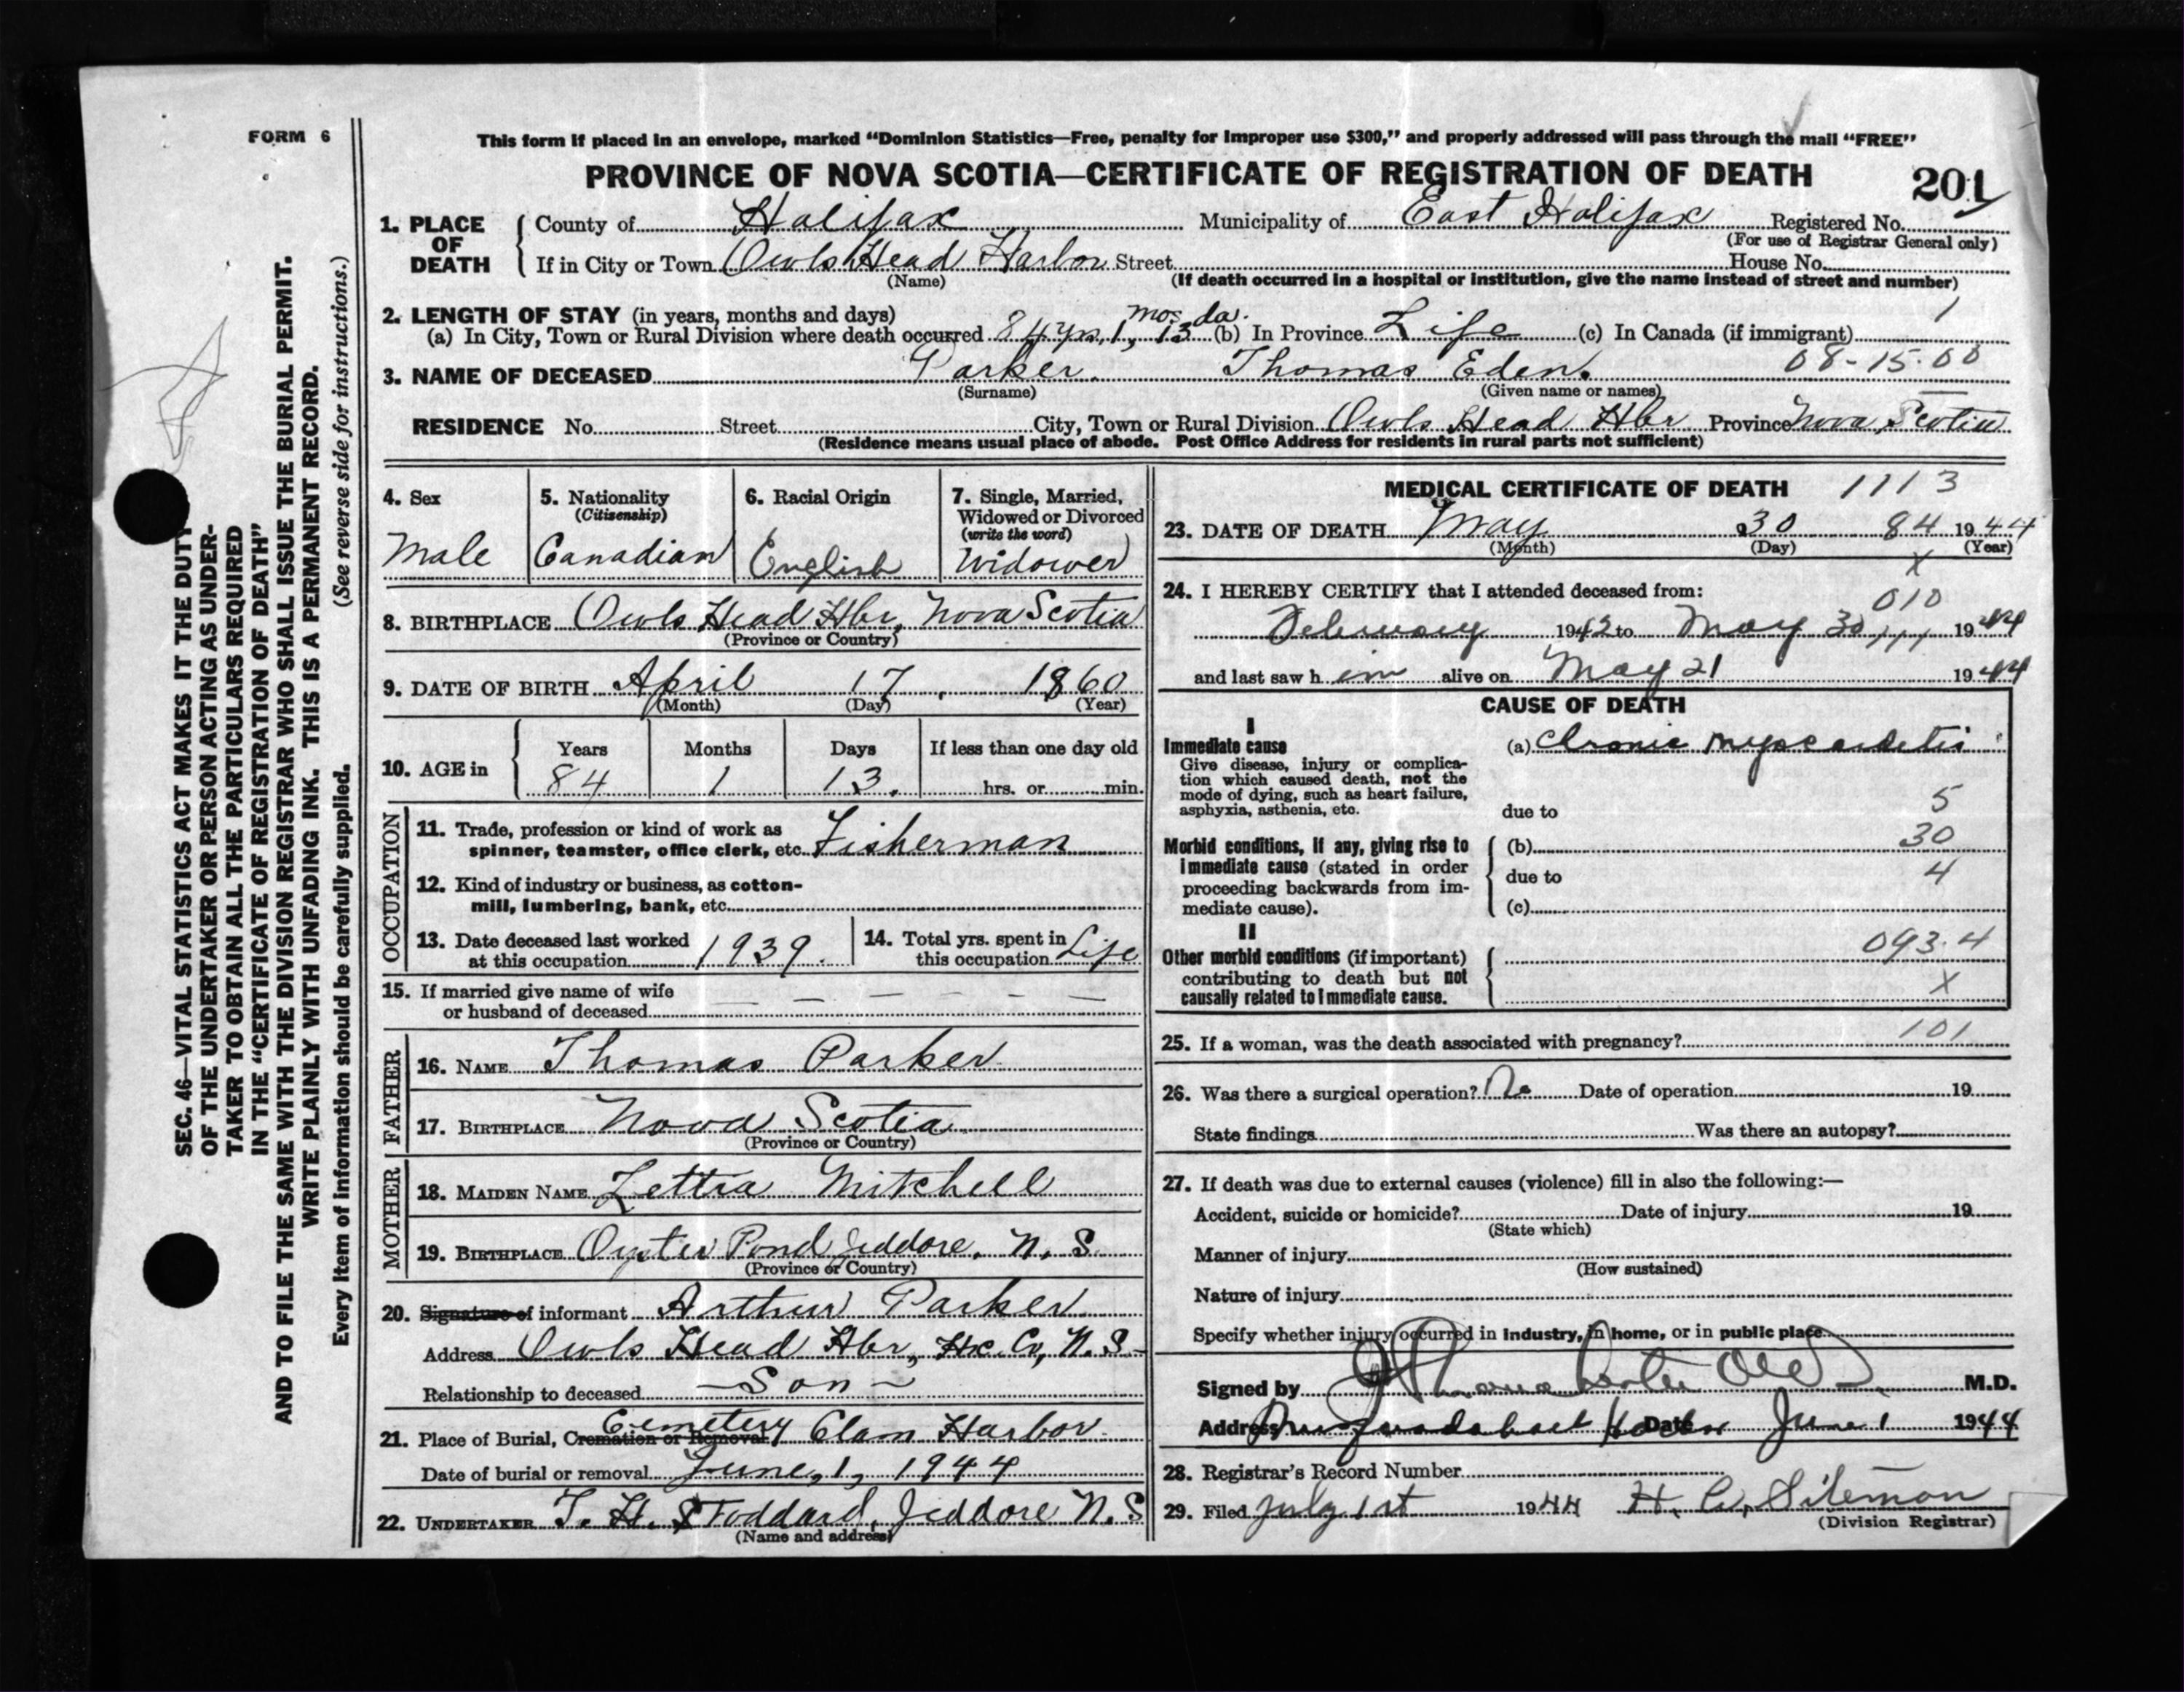 FORM 6
This form if placed in an envelope, marked “Dominion Statistics—Free, penalty for improper use $300,” and properly addressed will pass through the mail “FREE”
PROVINCE OF NOVA SCOTIA—CERTIFICATE OF REGISTRATION OF DEATH
201
1. PLACE OF DEATH
County of Halifax Municipality of East Halifax Registered No.
(For use of Registrar General only)
If in City or Town Owls Head Harbor Street House No.
(Name) (If death occurred in a hospital or institution, give the name instead of street and number)
2. LENGTH OF STAY (in years, months and days)
(a) In City, Town or Rural Division where death occurred 84 yrs, 1 mos, 13 da. (b) In Province Life (c) In Canada (if immigrant) 1
3. NAME OF DECEASED Parker. Thomas Eden. 08-15-00
(Surname) (Given name or names)
RESIDENCE No. Street City, Town or Rural Division Owls Head Hbr Province Nova Scotia
(Residence means usual place of abode. Post Office Address for residents in rural parts not sufficient)
4. Sex
Male
5. Nationality
(Citizenship)
Canadian
6. Racial Origin
English
7. Single, Married,
Widowed or Divorced
(write the word)
Widower
8. BIRTHPLACE Owls Head Hbr, Nova Scotia
(Province or Country)
9. DATE OF BIRTH April 17, 1860
(Month) (Day) (Year)
10. AGE in
Years Months Days If less than one day old
84 1 13. hrs. or min.
OCCUPATION
11. Trade, profession or kind of work as
spinner, teamster, office clerk, etc. Fisherman
12. Kind of industry or business, as cotton-
mill, lumbering, bank, etc.
13. Date deceased last worked
at this occupation 1939.
14. Total yrs. spent in
this occupation Life
15. If married give name of wife
or husband of deceased — — — — — — —
FATHER
16. NAME Thomas Parker
17. BIRTHPLACE Nova Scotia
(Province or Country)
MOTHER
18. MAIDEN NAME Lettia Mitchell
19. BIRTHPLACE Oyster Pond Jeddore, N. S.
(Province or Country)
20. Signature of informant Arthur Parker
Address Owls Head Hbr, Hx. Co, N. S.
Relationship to deceased —Son—
21. Place of Burial, Cremation or Removal Cemetery Clam Harbor
Date of burial or removal June, 1, 1944
22. UNDERTAKER T. H. Stoddard, Jeddore N. S
(Name and address)
MEDICAL CERTIFICATE OF DEATH 1113
23. DATE OF DEATH May 30 84 1944
(Month) (Day) (Year)
X
24. I HEREBY CERTIFY that I attended deceased from:
010
February 1942 to May 30 111 1944
and last saw h im alive on May 21 1944
CAUSE OF DEATH
I
Immediate cause
Give disease, injury or complica-
tion which caused death, not the
mode of dying, such as heart failure,
asphyxia, asthenia, etc.
(a) Chronic myocarditis
due to 5
Morbid conditions, if any, giving rise to
immediate cause (stated in order
proceeding backwards from im-
mediate cause).
(b) 30
due to 4
(c)
II
Other morbid conditions (if important)
contributing to death but not
causally related to immediate cause.
093.4
X
25. If a woman, was the death associated with pregnancy? 101
26. Was there a surgical operation? No Date of operation 19
State findings Was there an autopsy?
27. If death was due to external causes (violence) fill in also the following:—
Accident, suicide or homicide? Date of injury 19
(State which)
Manner of injury
(How sustained)
Nature of injury
Specify whether injury occurred in industry, in home, or in public place
Signed by M.D.
Address Date June 1 1944
28. Registrar’s Record Number
29. Filed July 1st 1944 H. C. Siteman
(Division Registrar)
SEC. 46—VITAL STATISTICS ACT MAKES IT THE DUTY
OF THE UNDERTAKER OR PERSON ACTING AS UNDER-
TAKER TO OBTAIN ALL THE PARTICULARS REQUIRED
IN THE “CERTIFICATE OF REGISTRATION OF DEATH”
AND TO FILE THE SAME WITH THE DIVISION REGISTRAR WHO SHALL ISSUE THE BURIAL PERMIT.
WRITE PLAINLY WITH UNFADING INK. THIS IS A PERMANENT RECORD.
Every item of information should be carefully supplied. (See reverse side for instructions.)